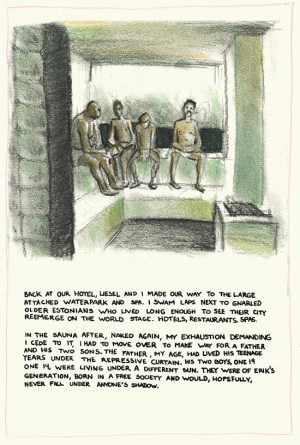 BACK AT OUR HOTEL, LIESEL AND I MADE OUR WAY TO THE LARGE
ATTACHED WATERPARK AND SPA. I SWAM LAPS NEXT TO GNARLED
OLDER ESTONIANS WHO LIVED LONG ENOUGH TO SEE THEIR CITY
REEMERGE ON THE WORLD STAGE. HOTELS, RESTAURANTS, SPAS.
IN THE SAUNA AFTER, NAKED AGAIN, MY EXHAUSTION DEMANDING
I CEDE TO IT, I HAD TO MOVE OVER TO MAKE WAY FOR A FATHER
AND HIS TWO SONS. THE FATHER, MY AGE, HAD LIVED HIS TEENAGE
YEARS UNDER THE REPRESSIVE CURTAIN. HIS TWO BOYS, ONE 19
ONE 14, WERE LIVING UNDER A DIFFERENT SUN. THEY WERE OF ERIK'S
GENERATION, BORN IN A FREE SOCIETY AND WOULD, HOPEFULLY,
NEVER FALL UNDER ANYONE'S SHADOW.